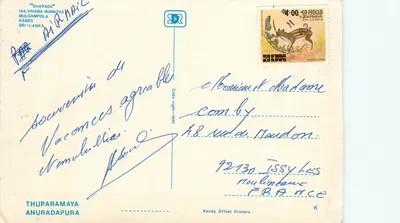 "SHARADA"
154, VIHARA MAWATHA
MULGAMPOLA
KANDY
SRI-LANKA
AIR MAIL
5.00
souvenirs de
Vacances agréables
Monsieur et Madame
Comby
48 rue de Meudon
92130 ISSY LES
Moulineaux
FRANCE
THUPARAMAYA
ANURADAPURA
Kandy Offset Printers
K